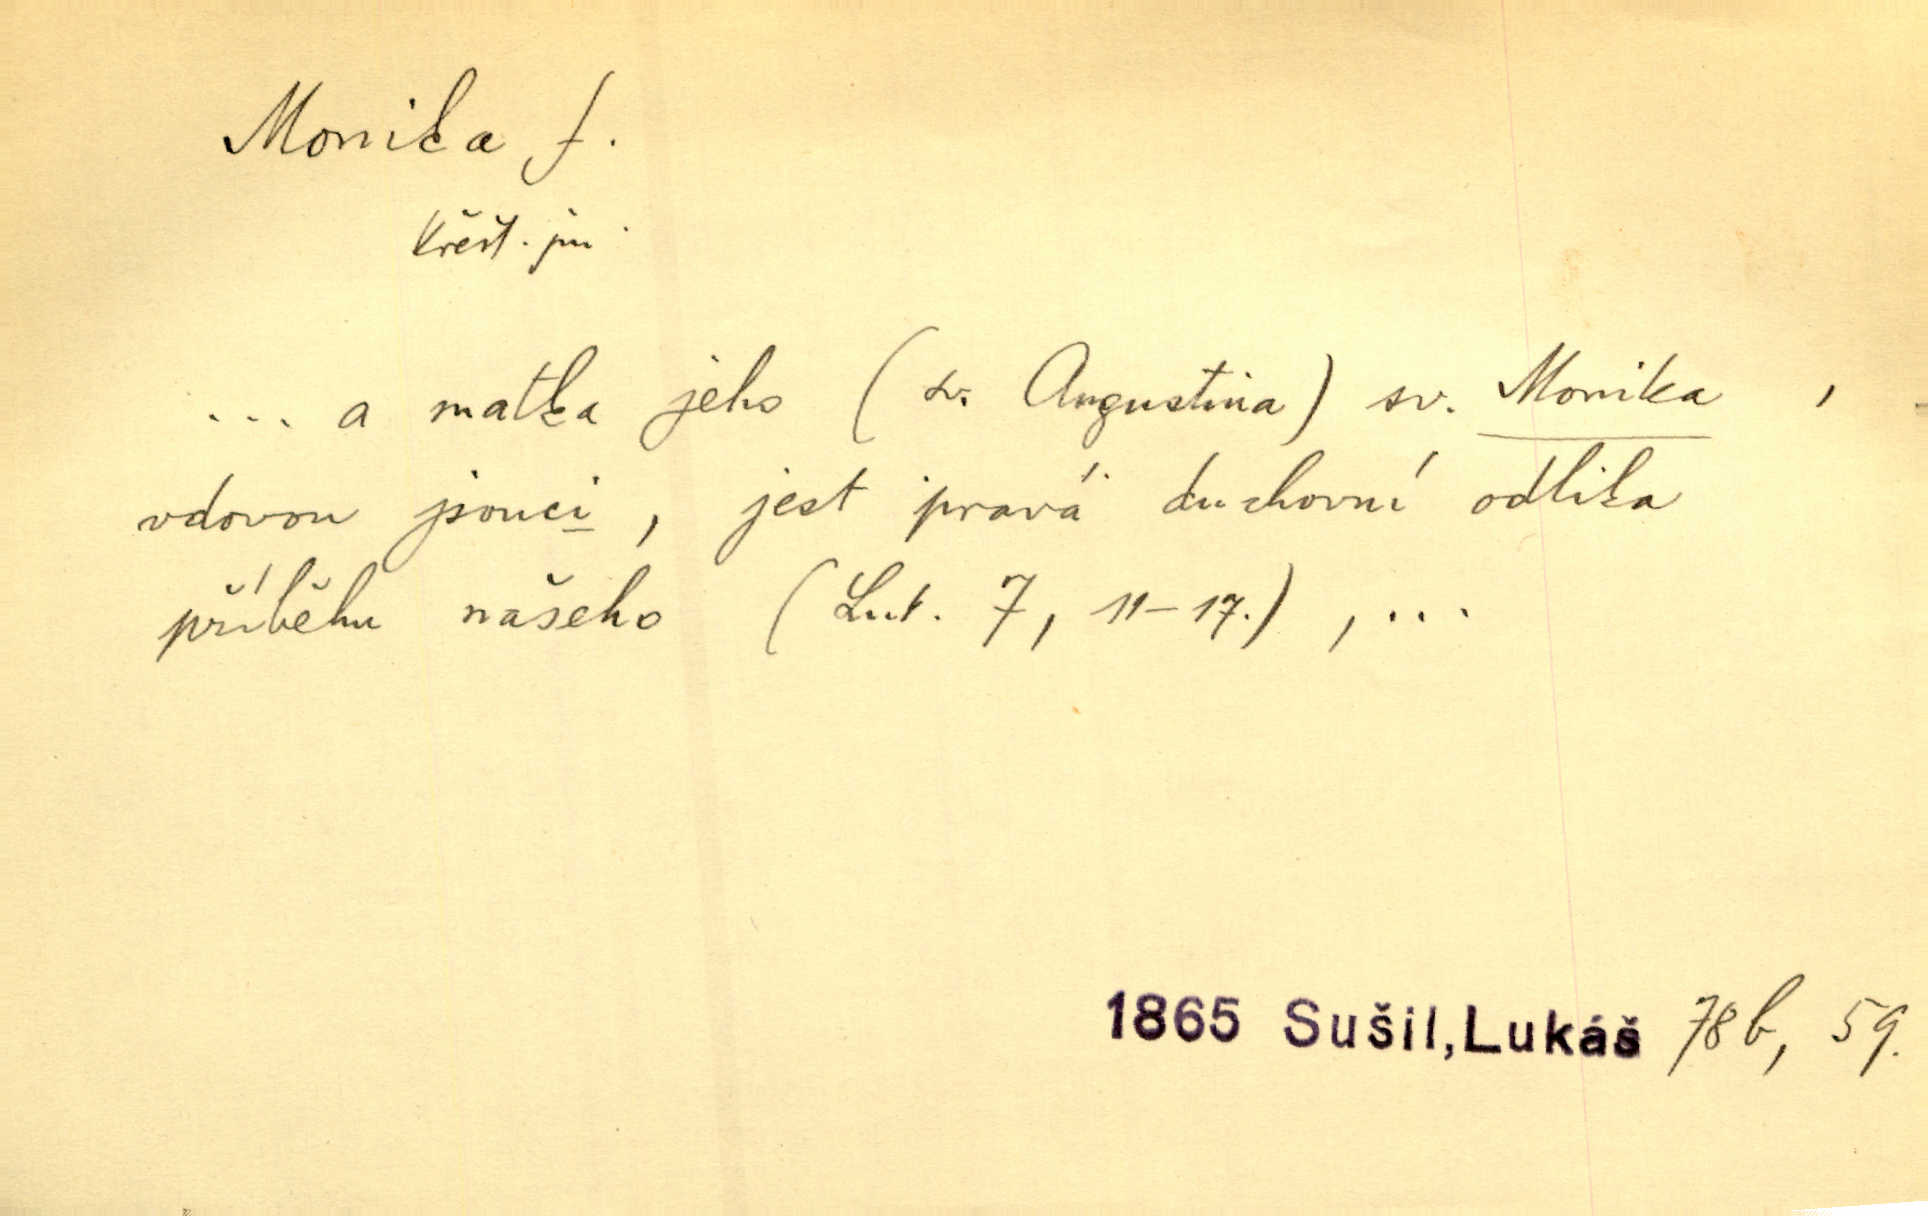 Monika f.
křest. jm.
... a matka jeho (sv. Augustina) sv. Monika ,
vdovou jsouci, jest pravá duchovní odlika
příběhu našeho (Luk. 7, 11-17.), ...
1865 Sušil, Lukáš 78b, 59.